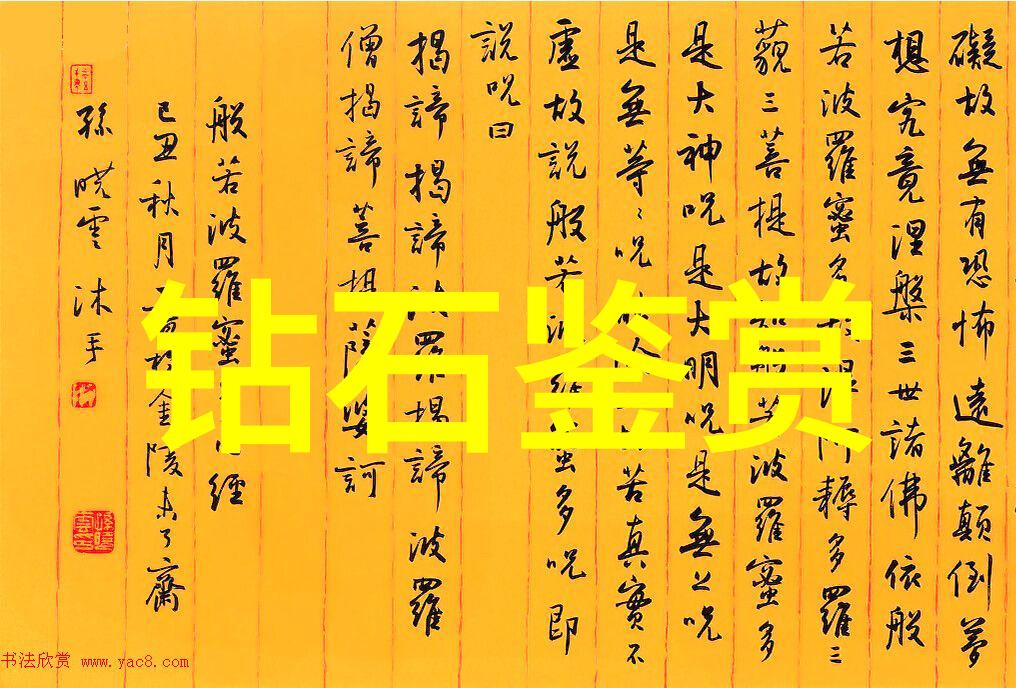 礙故無有恐怖遠離顛倒夢
想究竟涅槃三世諸佛依般
若波羅蜜多故得阿耨多羅三
藐三菩提故知般若波羅蜜多
是大神咒是大明咒是無上咒
是無等〻咒苦真實不
虛故說般若波羅蜜多咒即
說咒曰
揭諦揭諦波羅揭諦波羅
僧揭諦菩提薩婆訶
般若波羅蜜經
己丑秋月於金陵未了齋
孫曉雲沐手
钻石鉴赏
书法欣赏 www.yac8.com